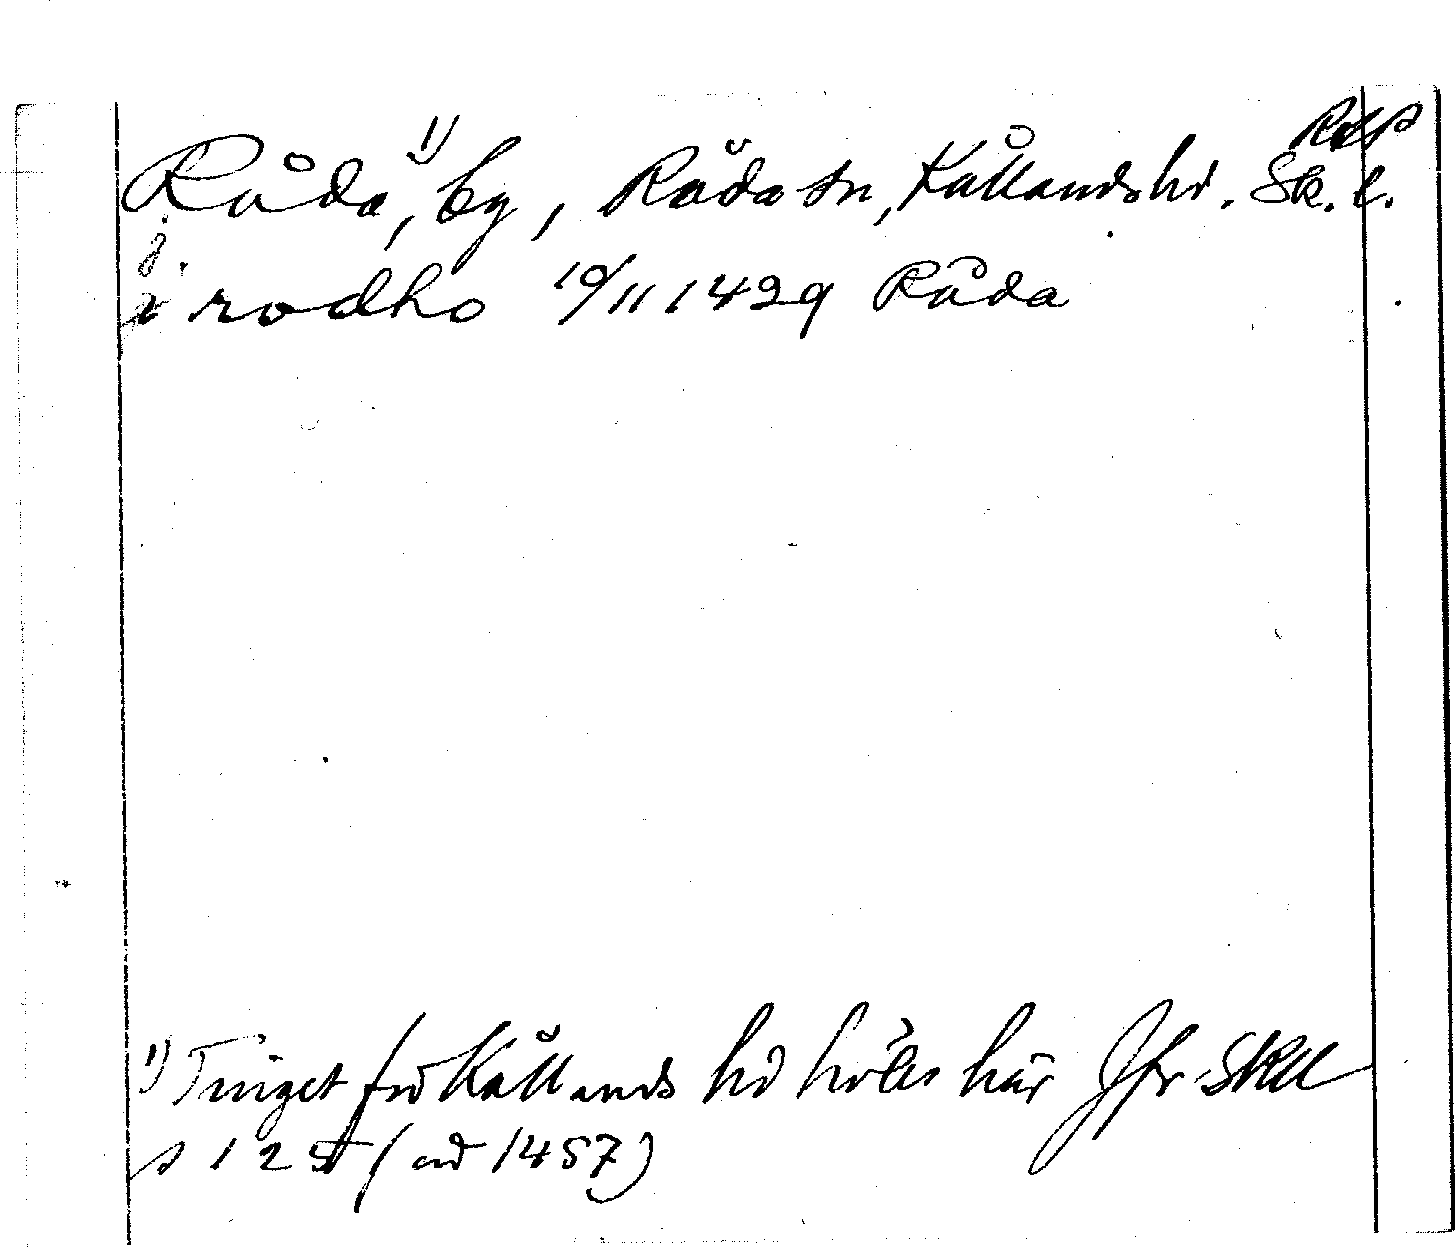 Råda,¹⁾ by, Råda sn, Kållands hd. Sk. l.
j.
i rodho 19/11 1429 Råda
¹⁾ Tinget för Kållands hd hölls här Jfr SRU
s 125 (ad 1457)